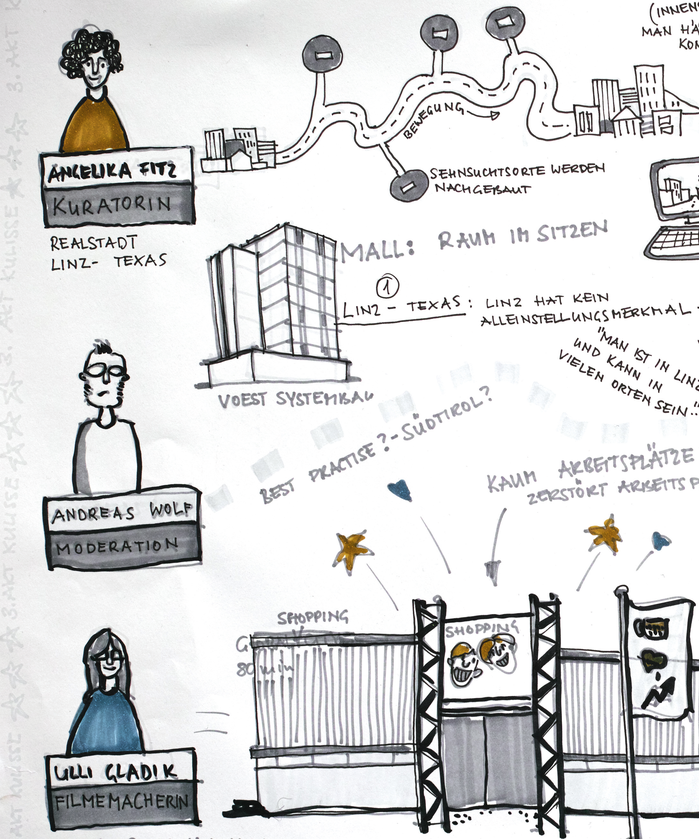 3. AKT KULISSE
(INNEN
MAN HÄ
KON
BEWEGUNG
ANGELIKA FITZ
KURATORIN
SEHNSUCHTSORTE WERDEN
NACHGEBAUT
REALSTADT
LINZ- TEXAS
MALL: RAUM IM SITZEN
1
LINZ - TEXAS: LINZ HAT KEIN
ALLEINSTELLUNGSMERKMAL
"MAN IST IN LINZ
UND KANN IN
VIELEN ORTEN SEIN."
VOEST SYSTEMBAU
BEST PRACTISE? - SÜDTIROL?
KAUM ARBEITSPLÄTZE
ZERSTÖRT ARBEITSP
ANDREAS WOLF
MODERATION
SHOPPING
SHOPPING
80 min
ULLI GLADIK
FILMEMACHERIN